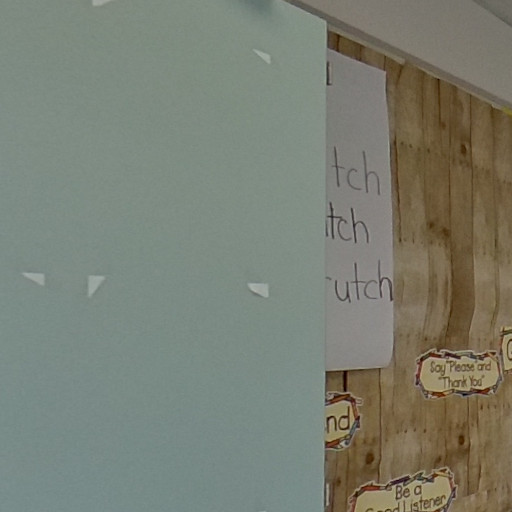 tch
tch
rutch
Say "Please and
"Thank You"
nd
Be a
Good Listener